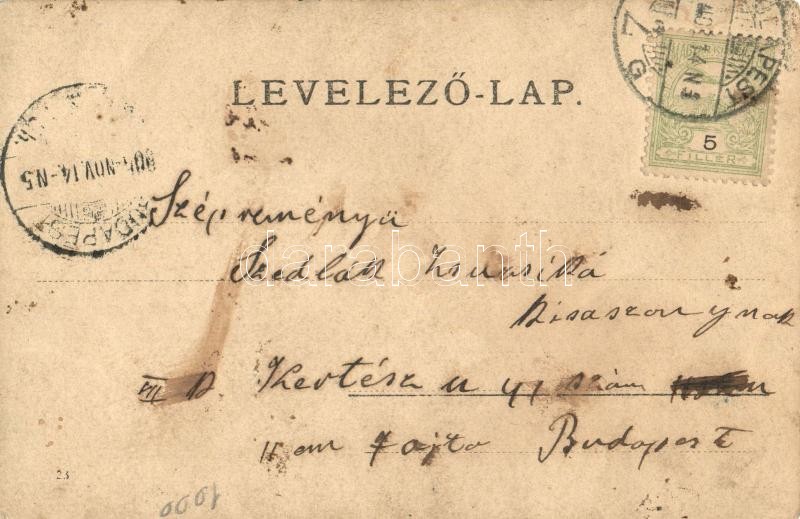 LEVELEZŐ-LAP.
BUDAPEST
904 NOV. 14.-N5
5
FILLÉR
Szépreményü
Szedlák Zsuzsiká
kisaszonynak
VII k. Kertész u 41 szám
II em 7 ajto Budapest
23
darabanth